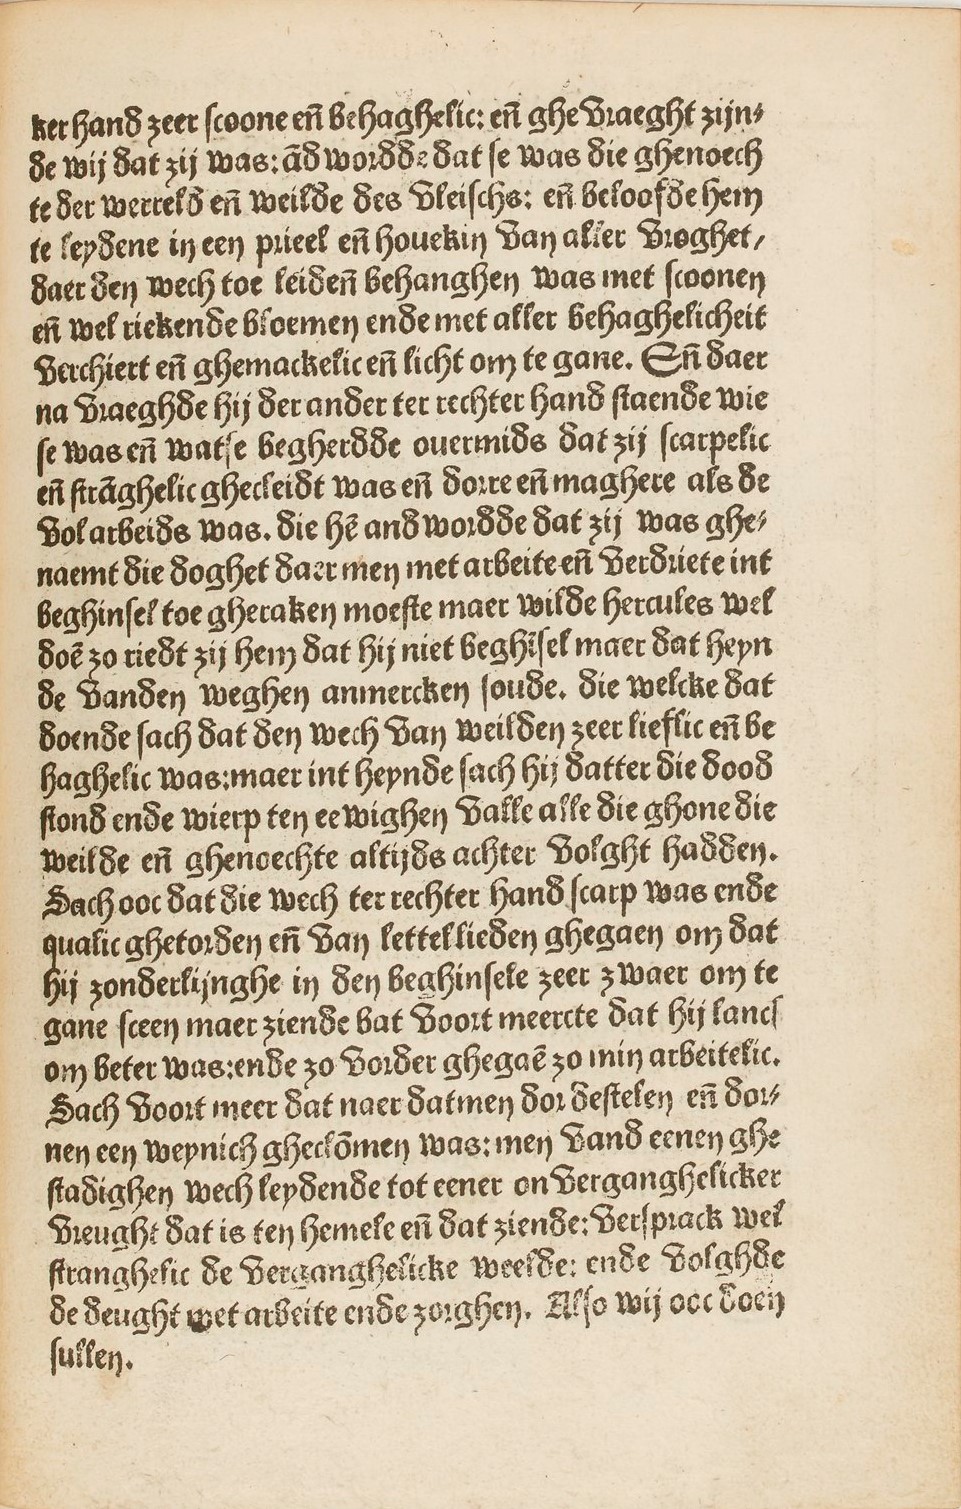 ker hand zeer scoone en̄ behaghelic: en̄ ghe vraeght zijn⸗
de wij dat zij was: ādwordde dat se was die ghenoech
te der werreld en̄ weilde des vleischs: en̄ beloofde hem
te leydene in een prieel en̄ houekin van aller vrøghet/
daer den wech toe leiden̄ behanghen was met scoonen
en̄ wel riekende bloemen ende met aller behaghelicheit
verchiert en̄ ghemackelic en̄ licht om te gane. En̄ daer
na vraeghde hij der ander ter rechter hand staende wie
se was en̄ watse begherdde ouermids dat zij scarpelic
en̄ strāghelic ghecleidt was en̄ dorre en̄ maghere als de
vol arbeids was. die hē andwordde dat zij was ghe⸗
naemt die doghet daer men met arbeite en̄ verdriete int
beghinsel toe gheraken moeste maer wilde hercules wel
doē zo riedt zij hem dat hij niet beghīsel maer dat heyn
de vanden weghen anmercken soude. die welcke dat
doende sach dat den wech van weilden zeer lieflic en̄ be
haghelic was: maer int heynde sach hij datter die dood
stond ende wierp ten eewighen valle alle die ghone die
weilde en̄ ghenoechte altijds achter volght hadden.
Sach ooc dat die wech ter rechter hand scarp was ende
qualic ghetorden en̄ van lettel lieden ghegaen om dat
hij zonderlijnghe in den beghinsele zeer zwaer om te
gane sceen maer ziende bat voort meercte dat hij lancs
om beter was: ende zo vorder ghegaē zo min arbeitelic.
Sach voort meer dat naer datmen dor destelen en̄ dor⸗
nen een weynich gheclōmen was: men vand eenen ghe
stadighen wech leydende tot eener onverganghelicker
vreught dat is ten hemele en̄ dat ziende: versprack wel
stranghelic de verganghelicke weelde: ende volghde
de deught met arbeite ende zorghen. Also wij occ doen
sullen.